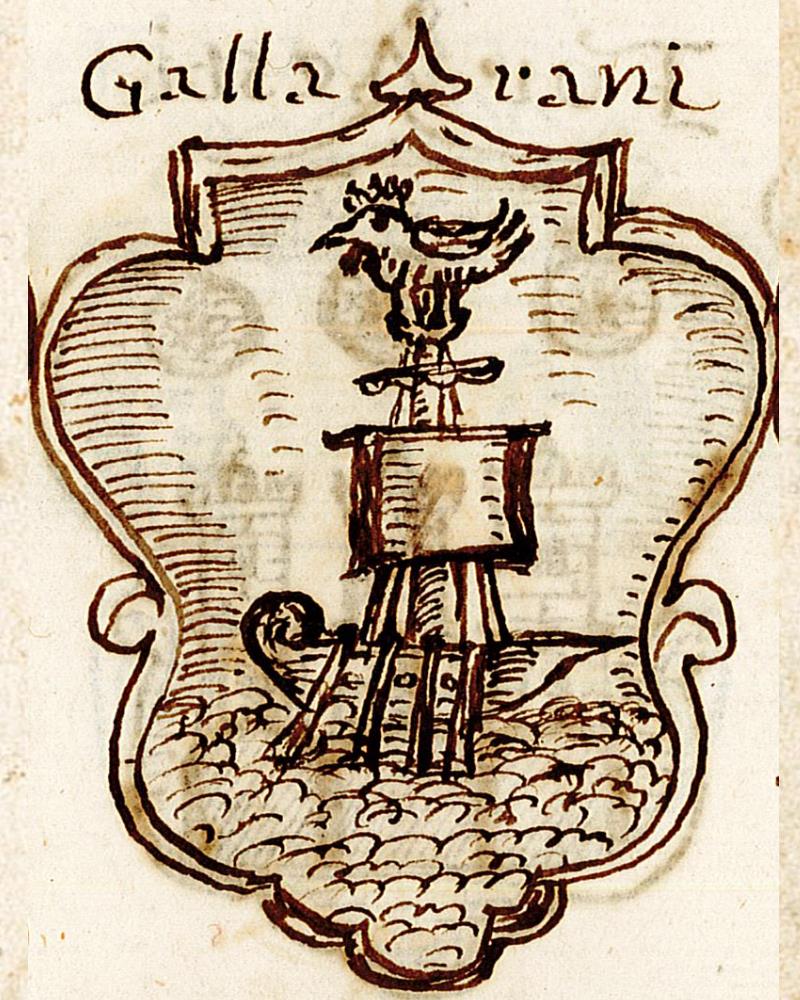 Galla rani